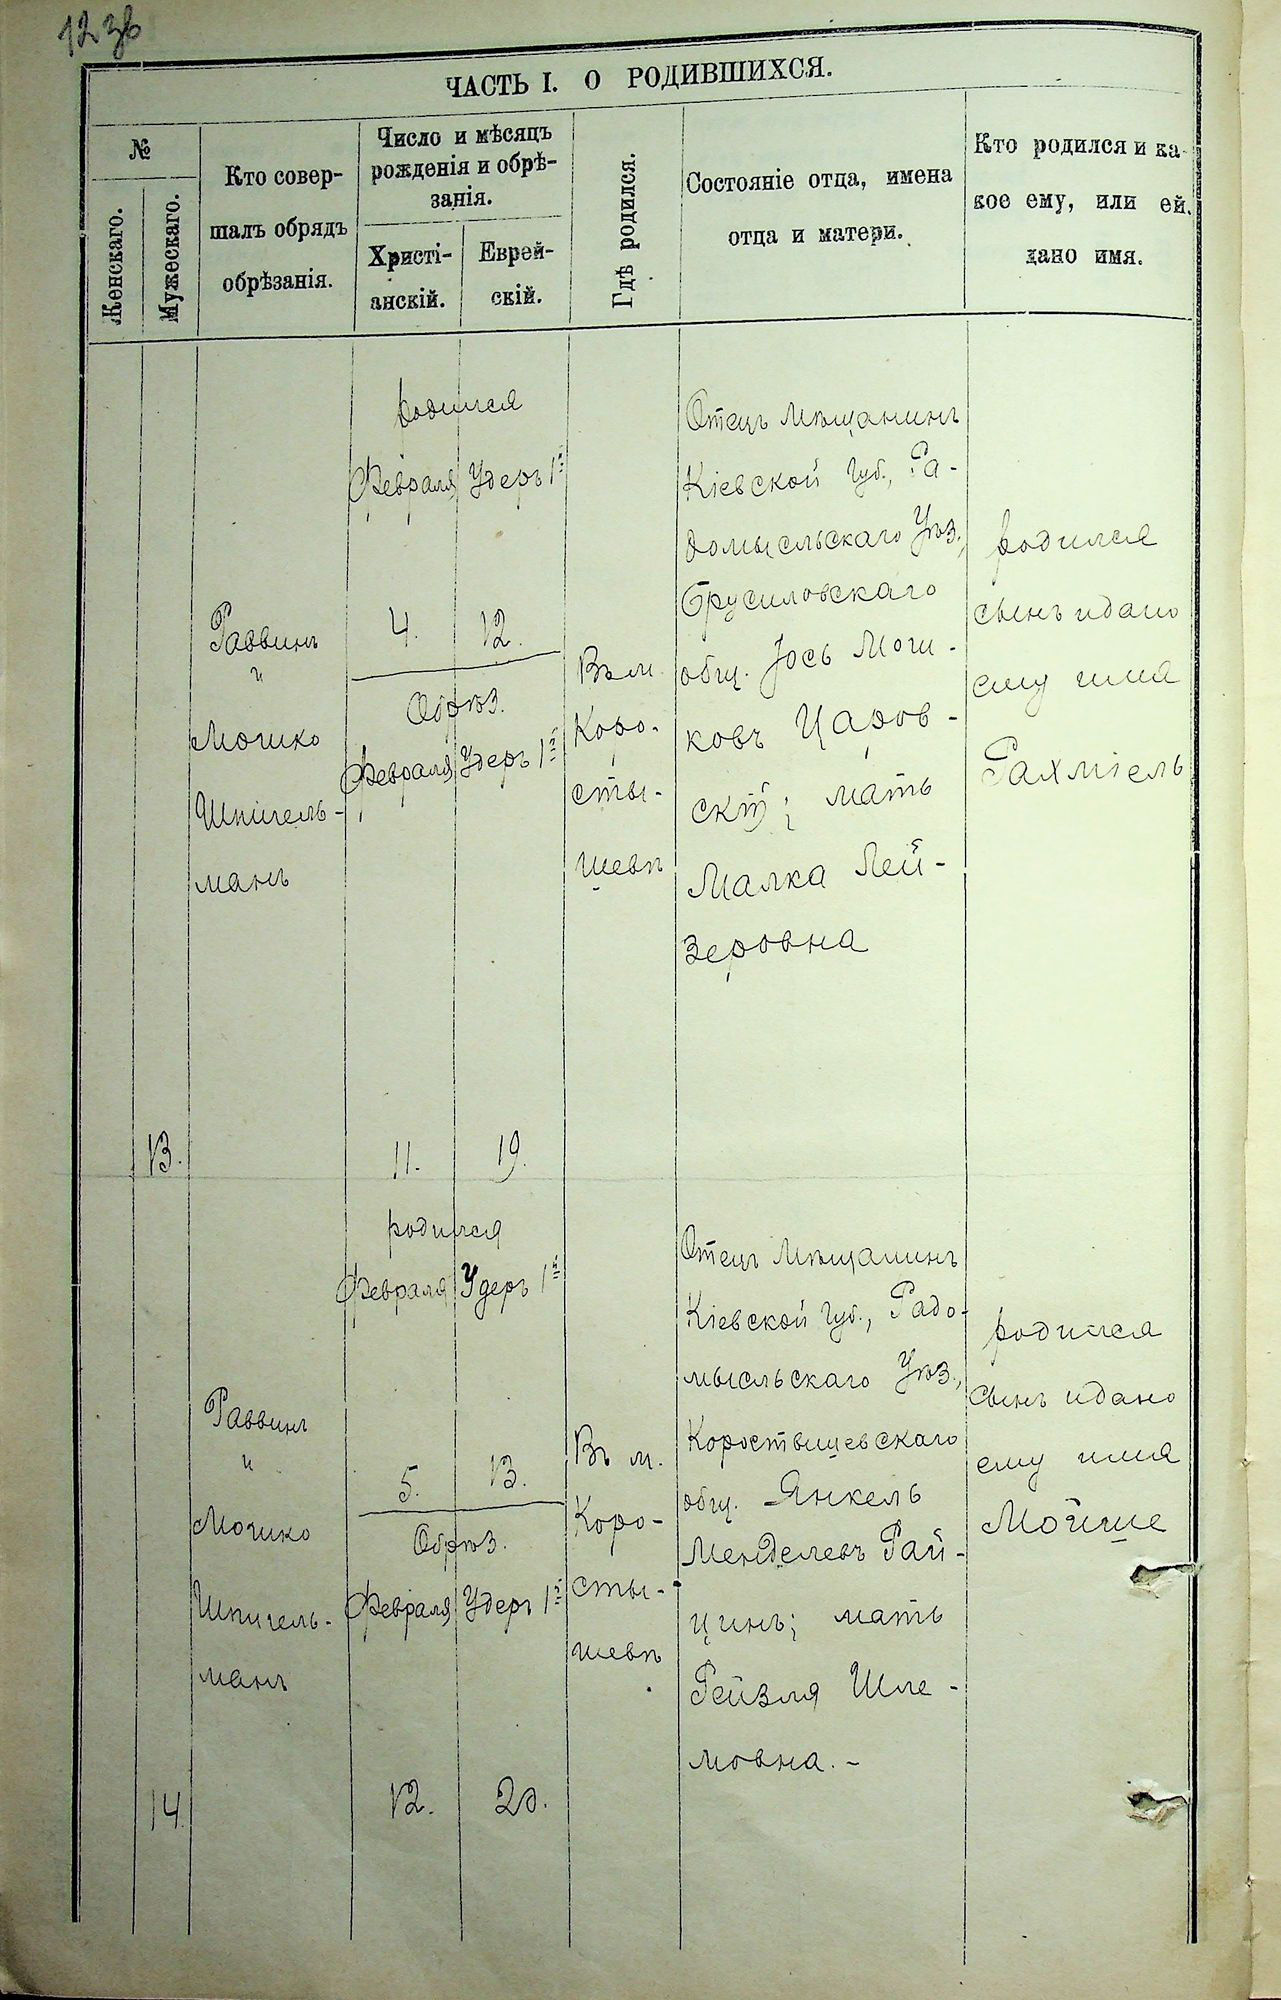 12 зв
ЧАСТЬ I. О РОДИВШИХСЯ.
№
Женскаго.
Мужескаго.
Кто совер-
шалъ обрядъ
обрѣзанія.
Число и мѣсяцъ
рожденія и обрѣ-
занія.
Христі-
анскій.
Еврей-
скій.
Гдѣ родился.
Состояніе отца, имена
отца и матери.
Кто родился и ка-
кое ему, или ей,
дано имя.
13.
Раввинъ
и
Мошко
Шпигель-
манъ
родился
Февраля Удеръ 1й
4. 12.
Обрѣз.
Февраля Удеръ 1й
11. 19.
Въ м.
Коро-
сты-
шевѣ
Отецъ Мѣщанинъ
Кіевской Губ., Ра-
домысльскаго Уѣз.,
Брусиловскаго
общ. Іось Мош-
ковъ Царов-
скій; мать
Малка Лей-
зеровна
родился
сынъ и дано
ему имя
Рахміель
14
Раввинъ
и
Мошко
Шпигель-
манъ
родился
Февраля Удеръ 1й
5. 13.
Обрѣз.
Февраля Удеръ 1й
12. 20.
Въ м.
Коро-
сты-
шевѣ
Отецъ Мѣщанинъ
Кіевской Губ., Радо-
мысльскаго Уѣз.,
Коростышевскаго
общ. Янкель
Менделевъ Рай-
цинъ; мать
Рейзля Шле-
мовна. -
родился
сынъ и дано
ему имя
Мойше